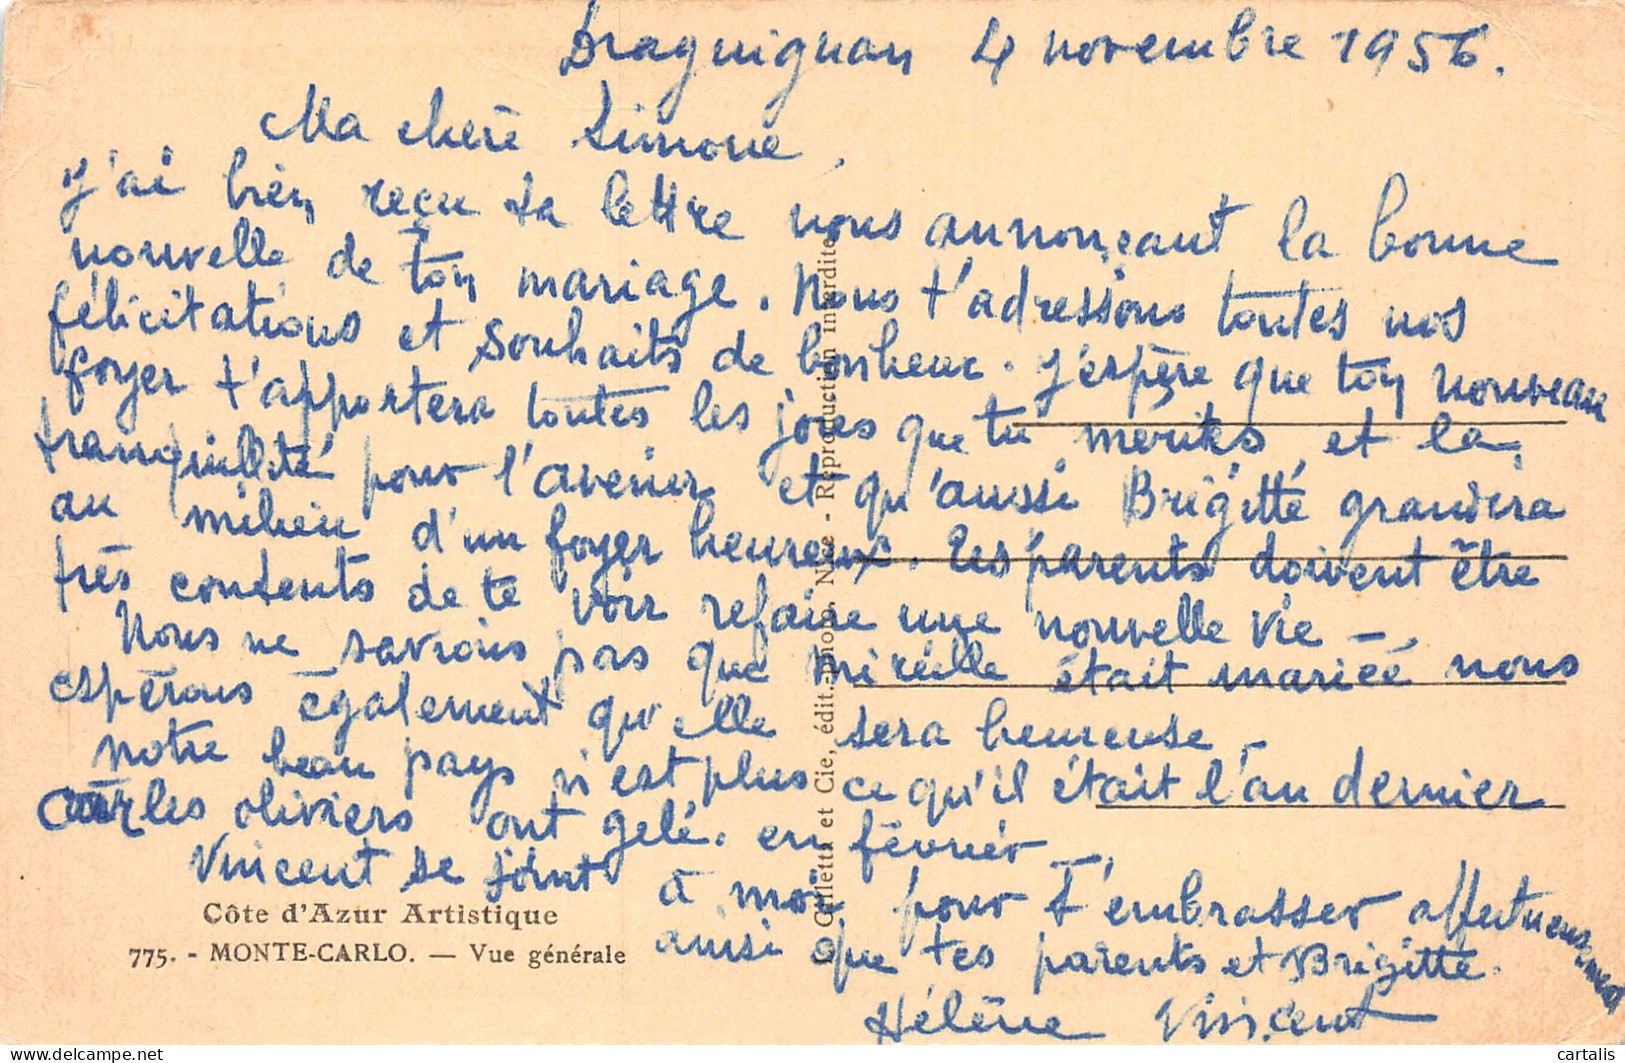 Draguignan 4 novembre 1956.
Ma chère Simone,
J'ai bien reçu ta lettre nous annonçant la bonne
nouvelle de ton mariage. Nous t'adressons toutes nos
félicitations et souhaits de bonheur. J'espère que ton nouveau
foyer t'apportera toutes les joies que tu mérites et la
tranquillité pour l'avenir et qu'aussi Brigitte grandira
au milieu d'un foyer heureux. Tes parents doivent être
très contents de te voir refaire une nouvelle vie -.
Nous ne savions pas que Mireille était mariée nous
espérons également qu'elle sera heureuse -
Notre beau pays n'est plus ce qu'il était l'an dernier
car les oliviers ont gelé. en février -.
Vincent se joint à moi pour t'embrasser affectueusement
ainsi que tes parents et Brigitte.
Hélène Vincent
Côte d'Azur Artistique
775. - MONTE-CARLO. — Vue générale
Gilletta et Cie, édit. photo, Nice - Reproduction interdite
cartalis